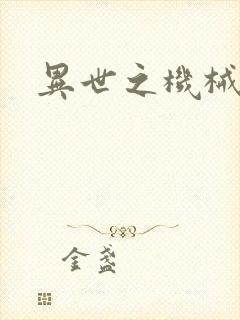 異世之機械
金盞